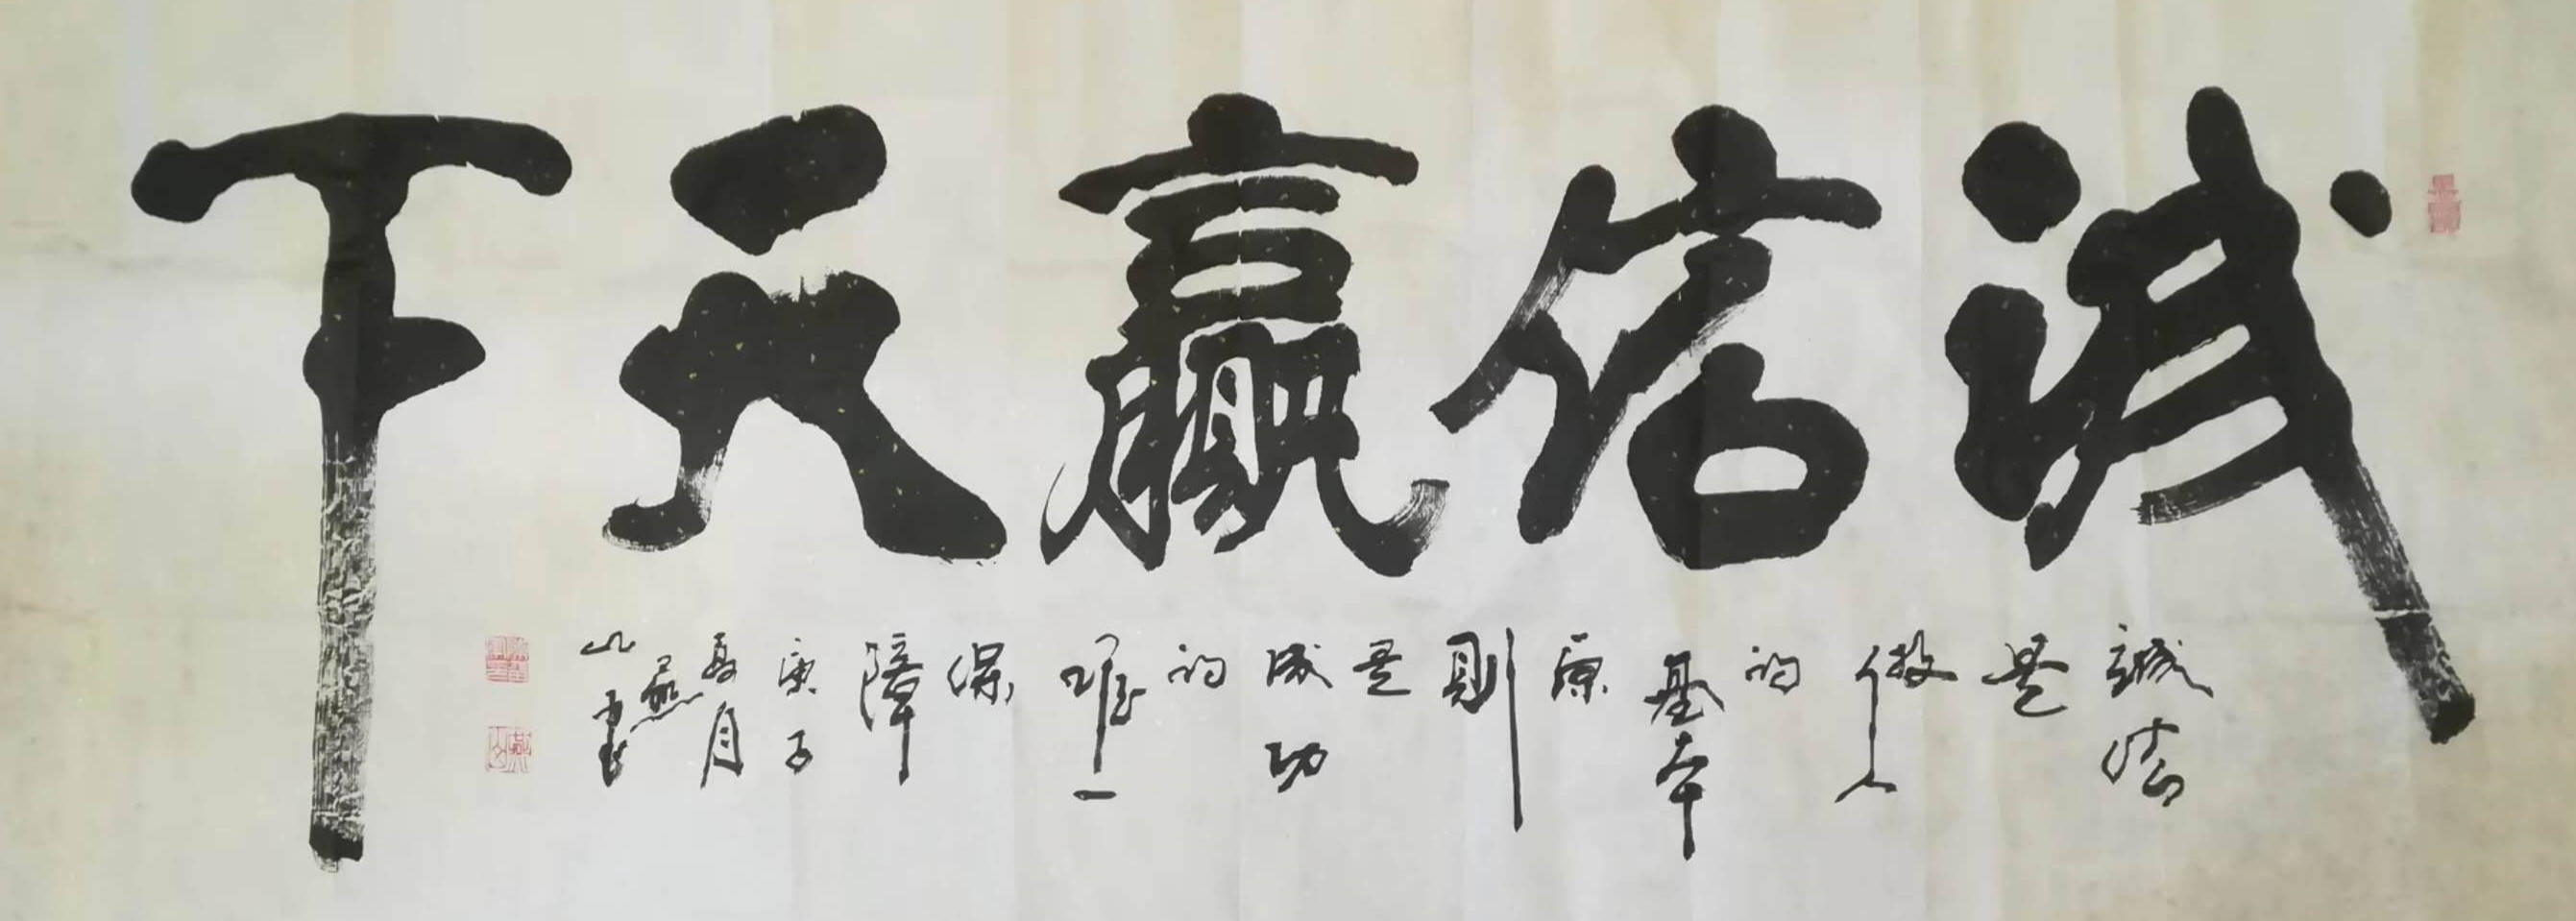 誠信贏天下
誠信
是
做人
的
基本
原
則
是
成功
的
唯一
保
障
庚子
夏月
燕
山書